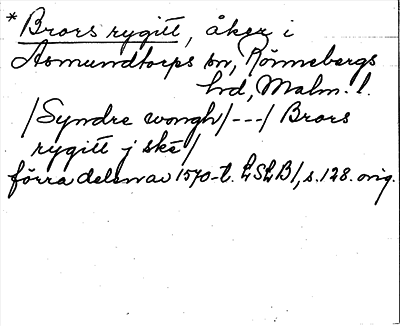 * Brors rygitt, åker i
Asmundtorps sn, Rönnebergs
hd, Malm. l.
/Syndre wongh/---/ Brors
rygitt j ske/
förra delen av 1570-t. LSLB/, s. 128. orig.